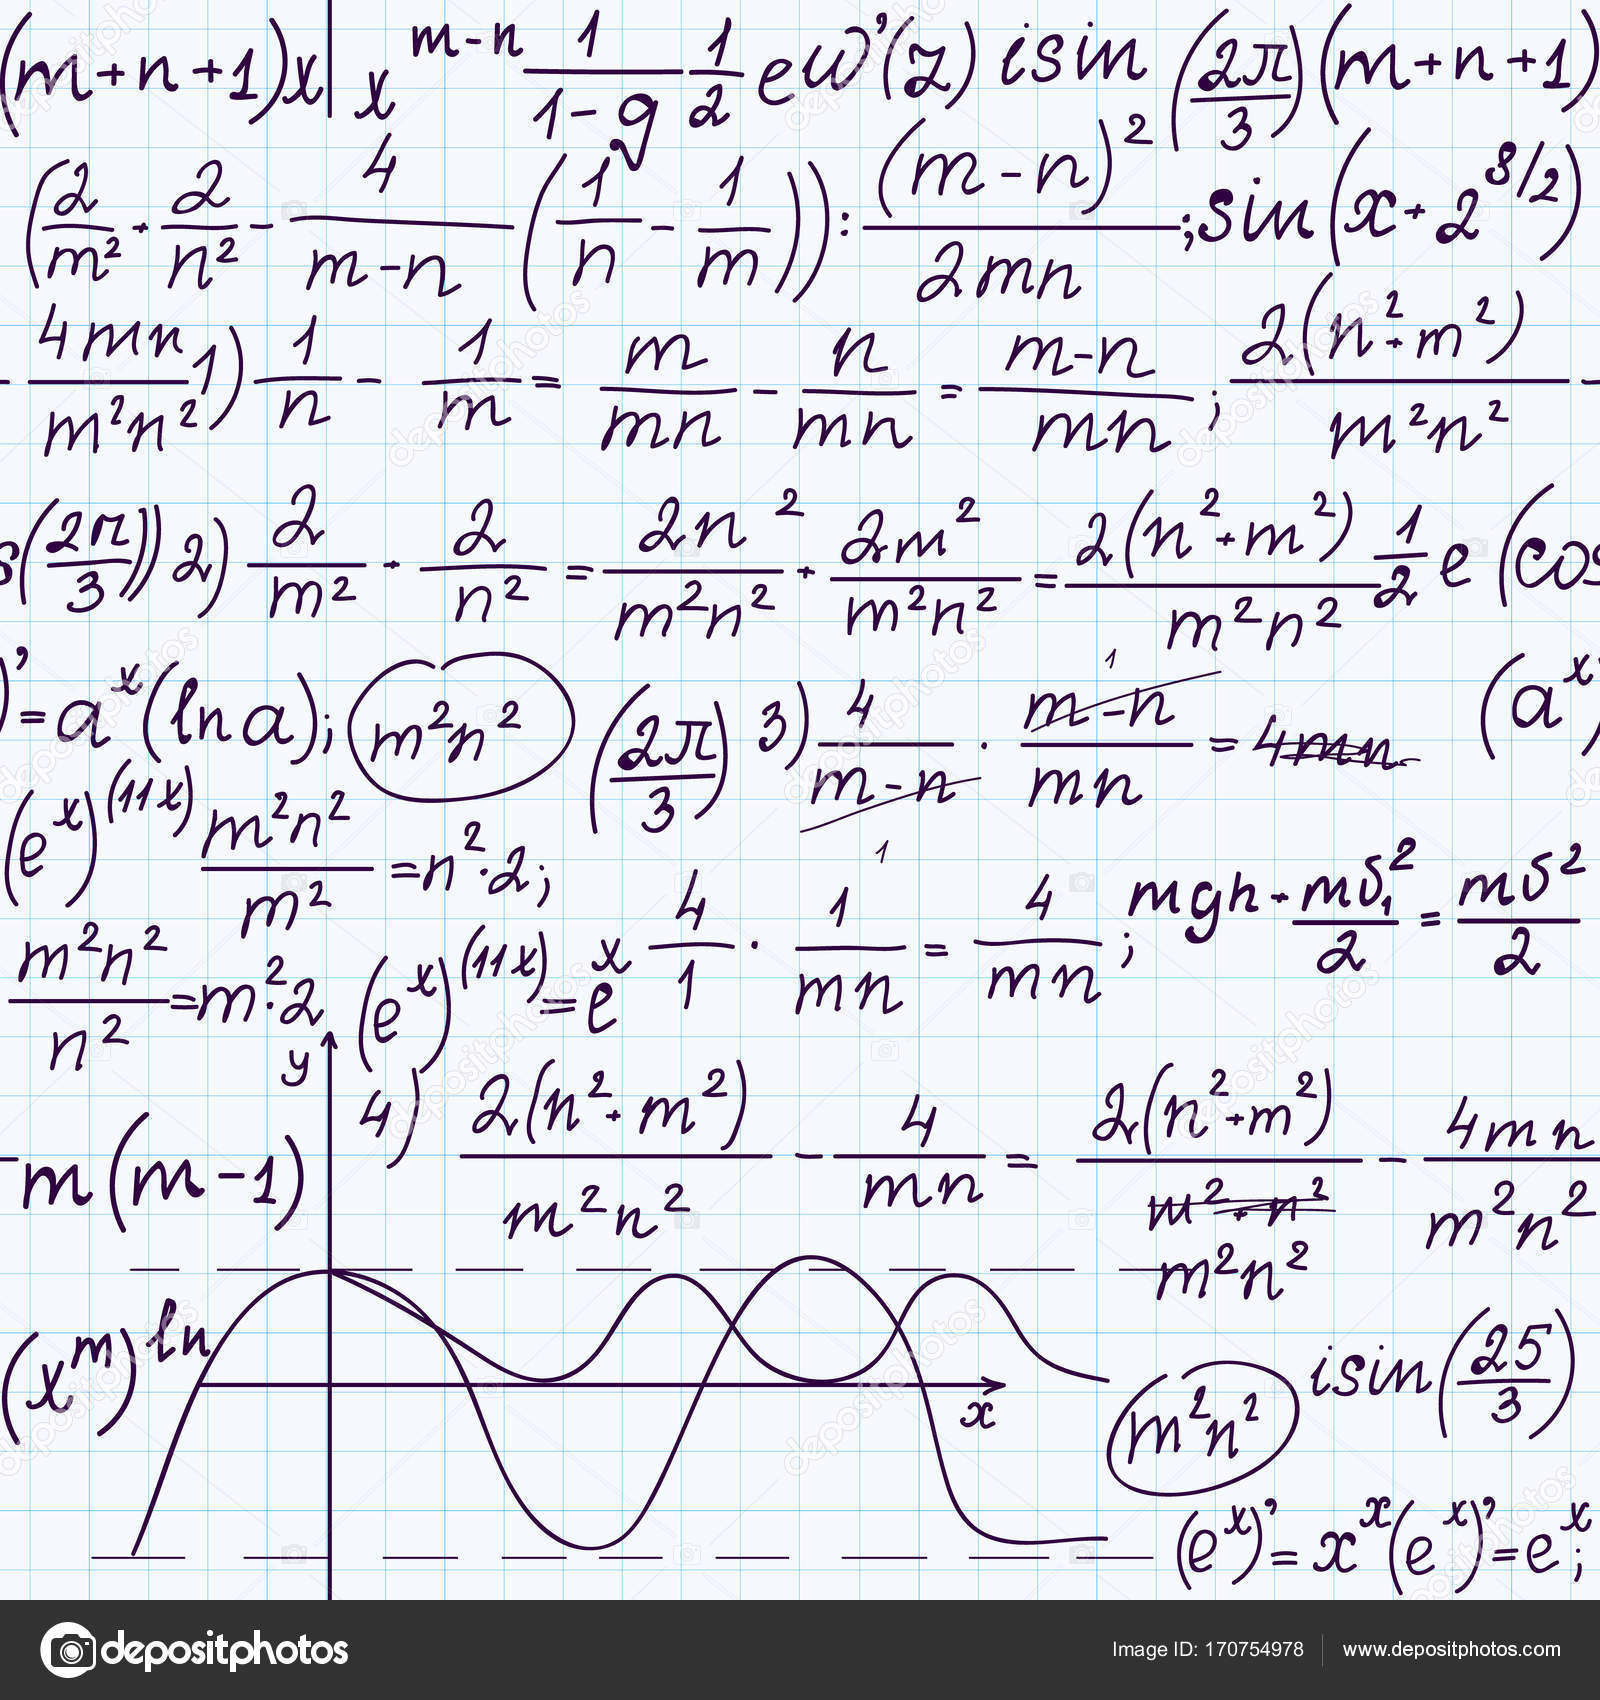 (m+n+1)x x^(m-n) 1/(1-g) 1/2 e w'(z) isin(2π/3) (m+n+1)
(2/m² + 2/n² - 4/(m-n) (1/n - 1/m)) : (m-n)²/2mn ; sin(x+2^(3/2))
- 4mn/m²n² 1) 1/n - 1/m = m/mn - n/mn = m-n/mn ; 2(n²+m²)/m²n² -
s(2π/3)) 2) 2/m² + 2/n² = 2n²/m²n² + 2m²/m²n² = 2(n²+m²)/m²n² 1/2 e (cos
)' = a^x (ln a); m²n² (2π/3) 3) 4/(m-n) · (m-n)/mn = 4mn (a^x)
1 1
(e^x)^(11x) m²n²/m² = n²·2; 4/1 · 1/mn = 4/mn ; mgh + mδ₁²/2 = mδ²/2
m²n²/n² = m²·2 (e^x)^(11x) = e^x
y
4) 2(n²+m²)/m²n² - 4/mn = 2(n²+m²)/m²+n² - 4mn/m²n²
m²n²
- m(m-1)
(x^m)^ln isin(25/3)
x m²n²
(e^x)' = x^x (e^x)' = e^x ;
depositphotos
Image ID: 170754978 www.depositphotos.com